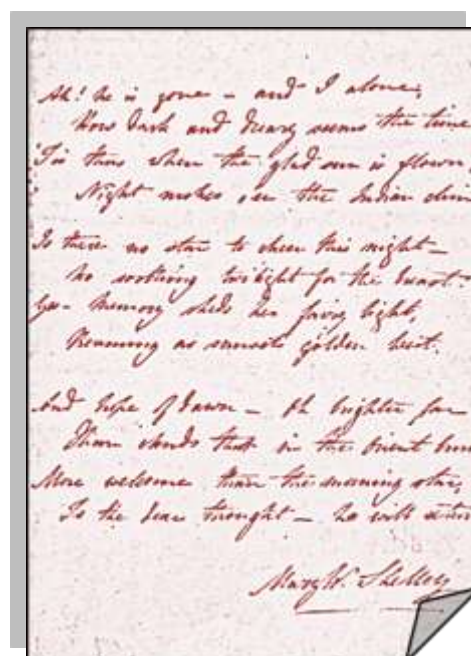 Ah! he is gone — and I alone;
How dark and dreary seems the time
'Tis thus when the glad sun is flown,
Night rushes o'er the Indian clime
Is there no star to cheer this night —
No soothing twilight for the breast?
Yes — Memory sheds her fairy light,
Pleasing as sunset's golden west.
And hope of dawn — Oh brighter far
Than clouds that in the Orient burn
More welcome than the morning star,
Is the dear thought — he will return
Mary W. Shelley